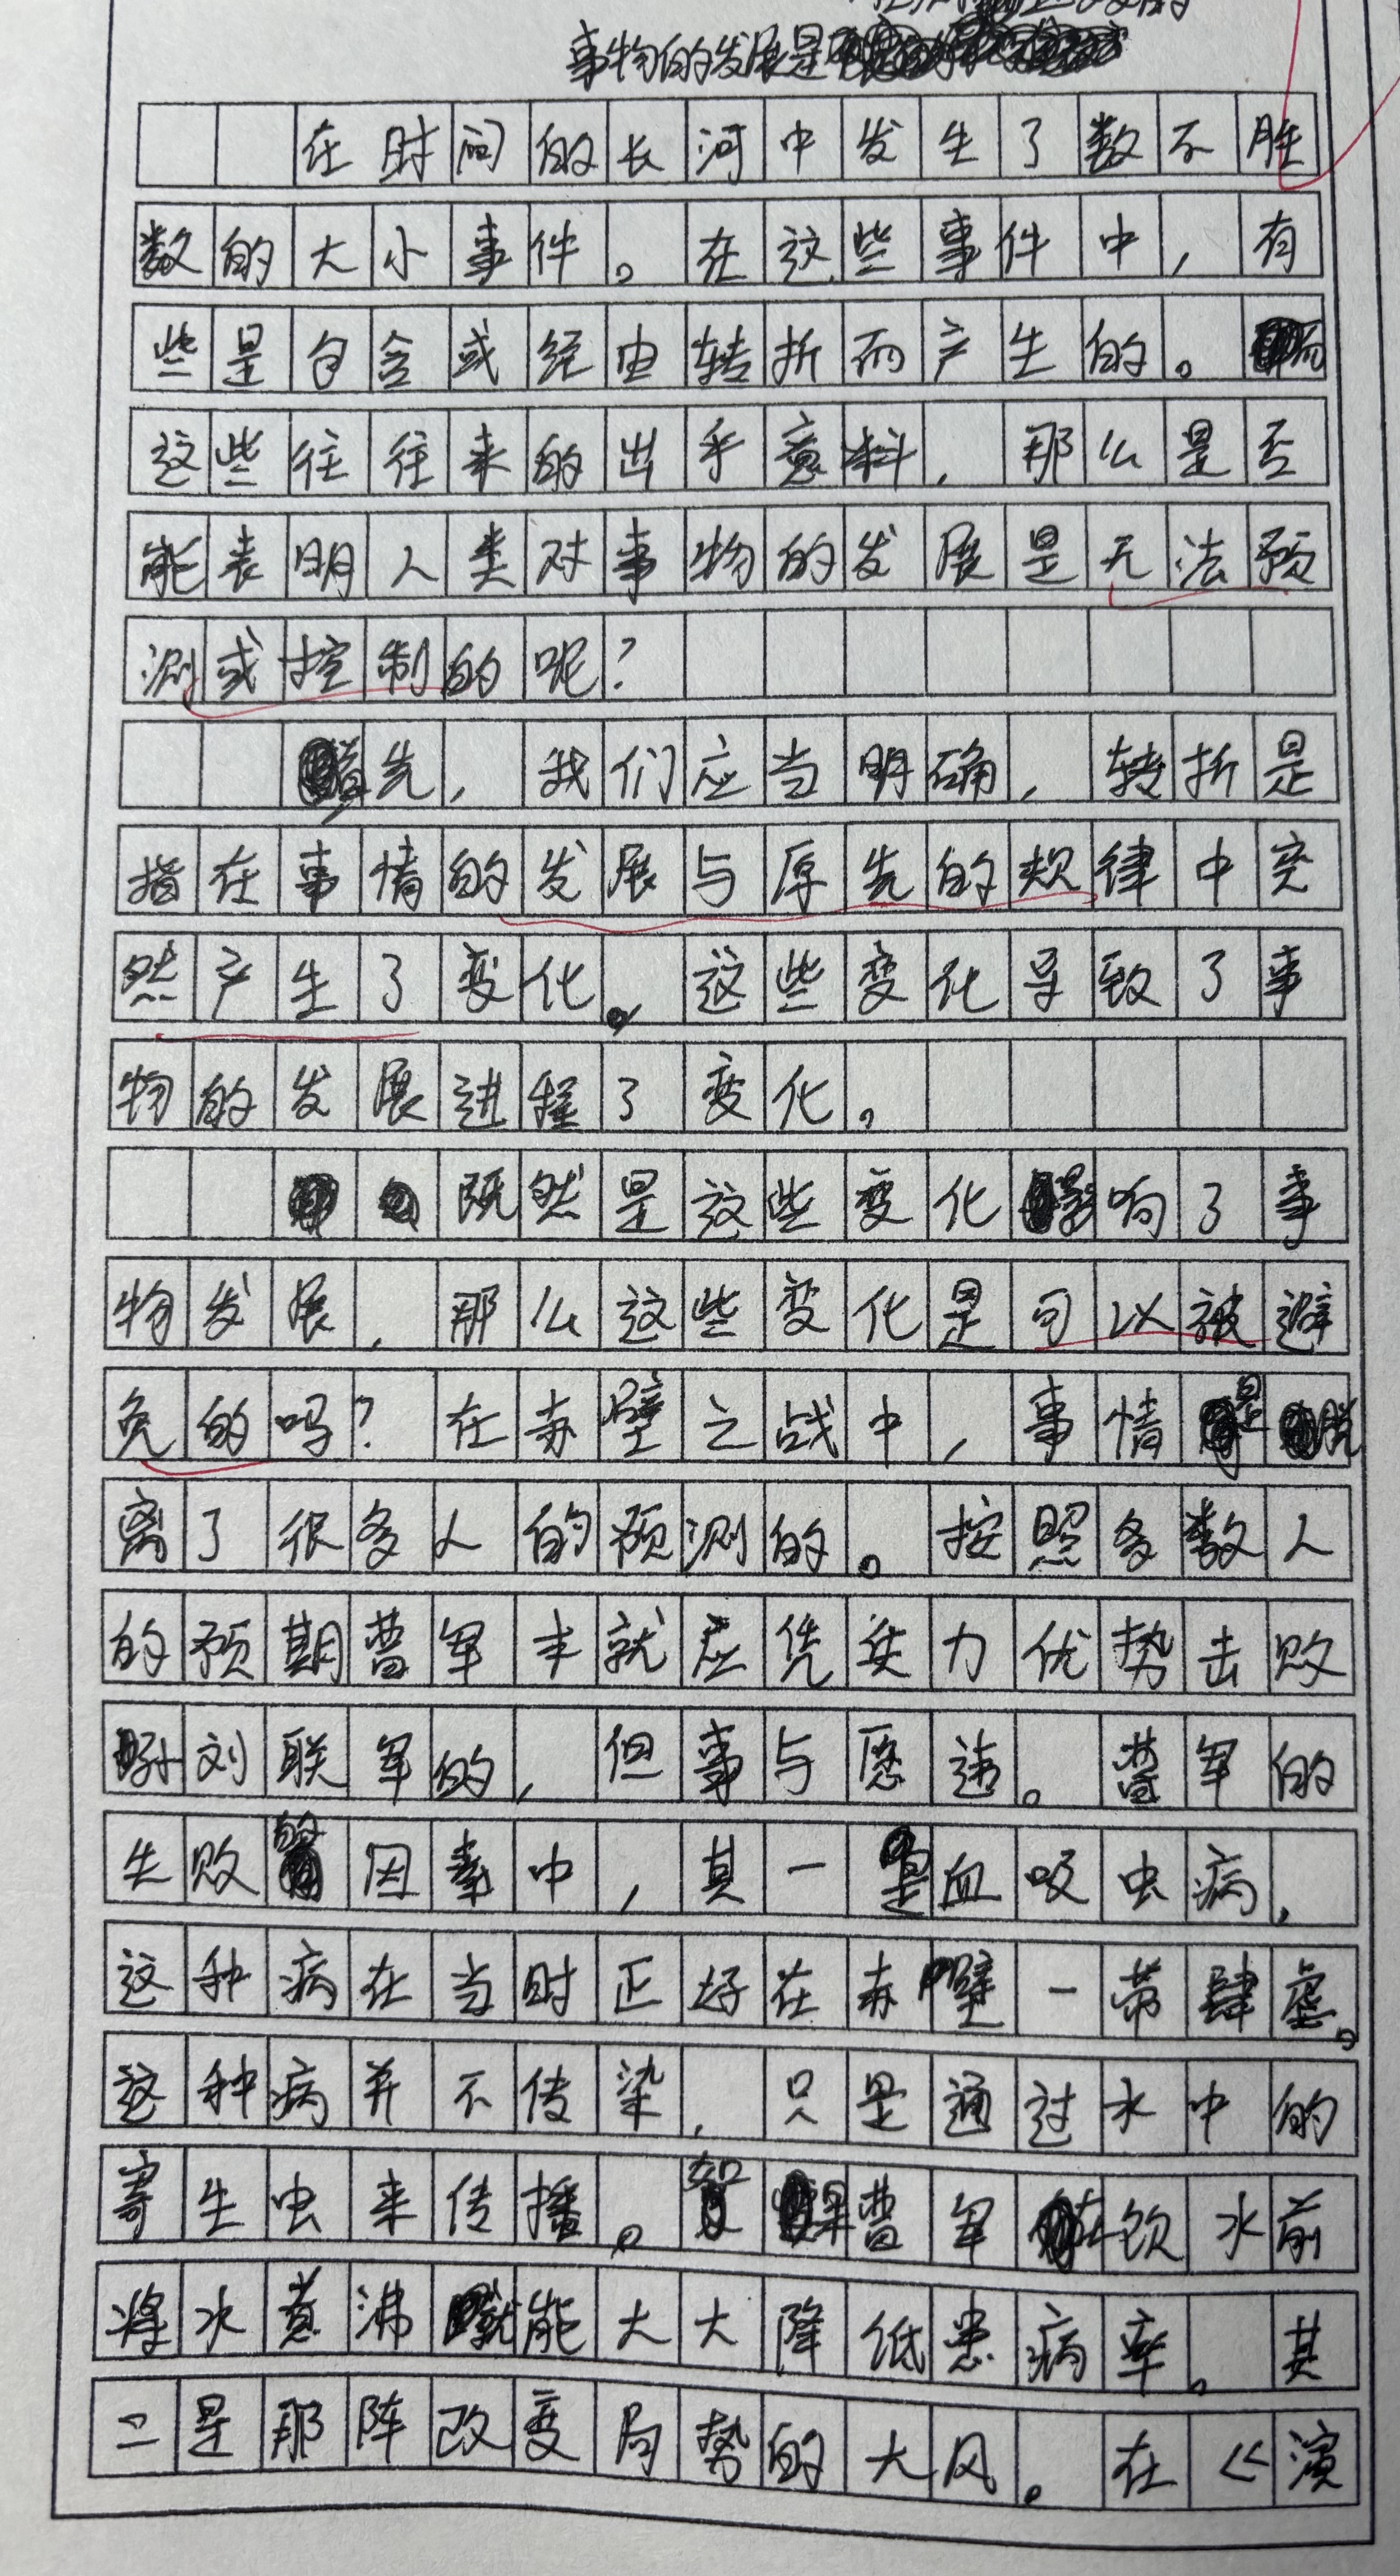 事物的发展是
在时间的长河中发生了数不胜
数的大小事件。在这些事件中，有
些是包含或经由转折而产生的。而
这些往往来的出乎意料，那么是否
能表明人类对事物的发展是无法预
测或控制的呢？
首先，我们应当明确，转折是
指在事情的发展与原先的规律中突
然产生了变化。这些变化导致了事
物的发展进程了变化。
既然是这些变化影响了事
物发展，那么这些变化是可以被避
免的吗？在赤壁之战中，事情是脱
离了很多人的预测的。按照多数人
的预期曹军本就应凭实力优势击败
孙刘联军的，但事与愿违。曹军的
失败的因素中，其一是血吸虫病，
这种病在当时正好在赤壁一带肆虐。
这种病并不传染，只是通过水中的
寄生虫来传播。如果曹军在饮水前
将水煮沸就能大大降低患病率。其
二是那阵改变局势的大风。在《演